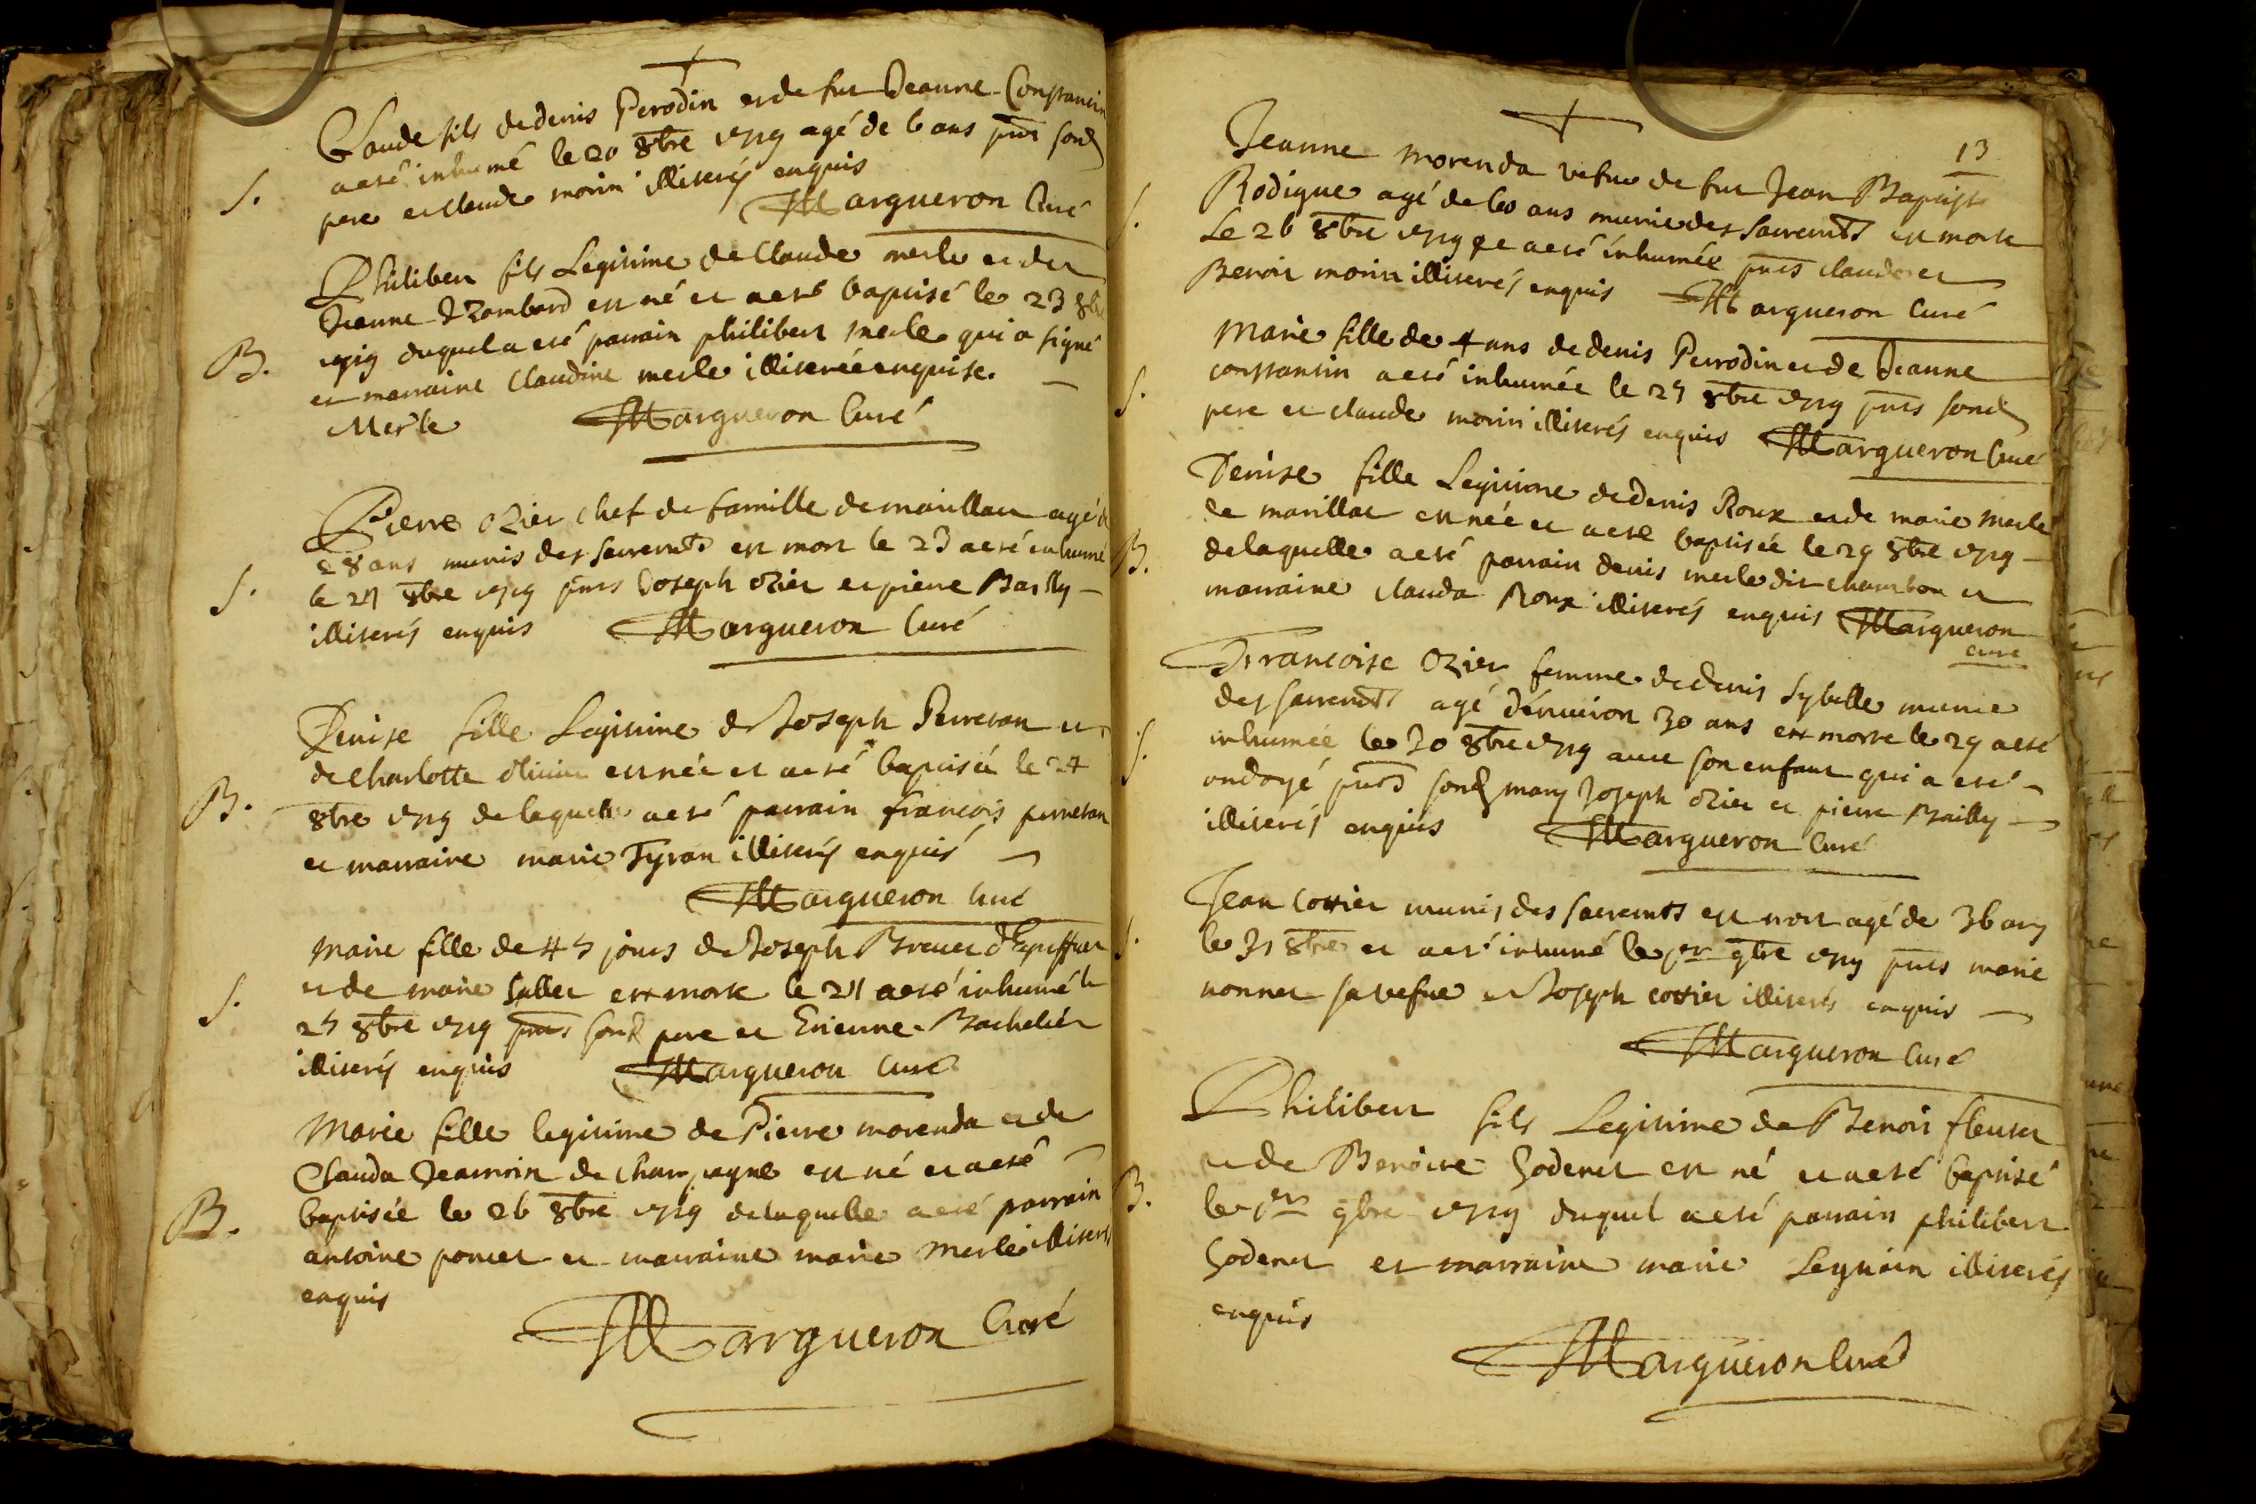 Claude fils de denis Perrodin et de fut Jeanne Constantin
a esté inhumé le 20 8bre 1719 agé de 6 ans pnts sond
pere et claude morin illiterés enquis
S.
Margueron Curé
Philibert fils Legitime de Claude merle et de
Jeanne Lombard est né et a esté baptisé le 23 8bre
1719 duquel a esté parrain philibert merle qui a signé
B.
et marraine Claudine merle illiterée enquise.
Merle Margueron Curé
Pierre Ozier chef de famille de marillat agé de
28 ans munis des sacremts est mort le 23 a esté inhumé
le 24 8bre 1719 pnts Joseph Ozier et pierre Bailly
S.
illiterés enquis Margueron Curé
Denise fille Legitime de Joseph Perretan et
de Charlotte olivier est née et a esté baptisée le 24
B.
8bre 1719 de laquelle a esté parrain francois perretan
et marraine marie Tyran illiterés enquis
Margueron Curé
Marie fille de 45 jours de Joseph Brevet
et de marie Sallet est morte le 24 a esté inhumé le
S.
25 8bre 1719 pnts sond pere et Etienne Bachelier
illiterés enquis Margueron Curé
Marie fille legitime de Pierre morenda et de
Clauda Jeannin de champagne est né et a esté
baptisée le 26 8bre 1719 de laquelle a esté parrain
B.
antoine poncet et marraine marie Merle illiterés
enquis
Margueron Curé
13
Jeanne morenda vefue de fut Jean Baptiste
Rodigue agé de 60 ans munie des sacremts est morte
S.
Le 26 8bre 1719 et a esté inhumée pnts claude et
Benoit morin illiterés enquis Margueron Curé
Marie fille de 4 ans de denis Perrodin et de Jeanne
constantin a esté inhumée le 27 8bre 1719 pnts sond
S.
pere et claude morin illiterés enquis Margueron Curé
Denise fille Legitime de denis Roux et de marie merle
de marillat est née et a esté baptisée le 29 8bre 1719
B.
de laquelle a esté parrain denis merle dit chambon et
marraine clauda Roux illiterés enquis Margueron
Curé
Francoise Ozier femme de denis Sybelle munie
des sacremts agé d'environ 30 ans est morte le 29 a esté
S.
inhumée le 30 8bre 1719 avec son enfant qui a esté
ondoyé pnts sond mary Joseph Ozier et pierre Bailly
illiterés enquis Margueron Curé
Jean Cottier munis des sacremts est mort agé de 36 ans
S.
le 31 8bre et a esté inhumé le pr 9bre 1719 pnts marie
nonnet sa vefue et Joseph cottier illiterés enquis
Margueron Curé
Philibert fils Legitime de Benoit fleuret
et de Benoite Godenet est né et a esté baptisé
B.
le pr 9bre 1719 duquel a esté parrain philibert
Godenet et marraine marie illiterés
enquis
Margueron Curé